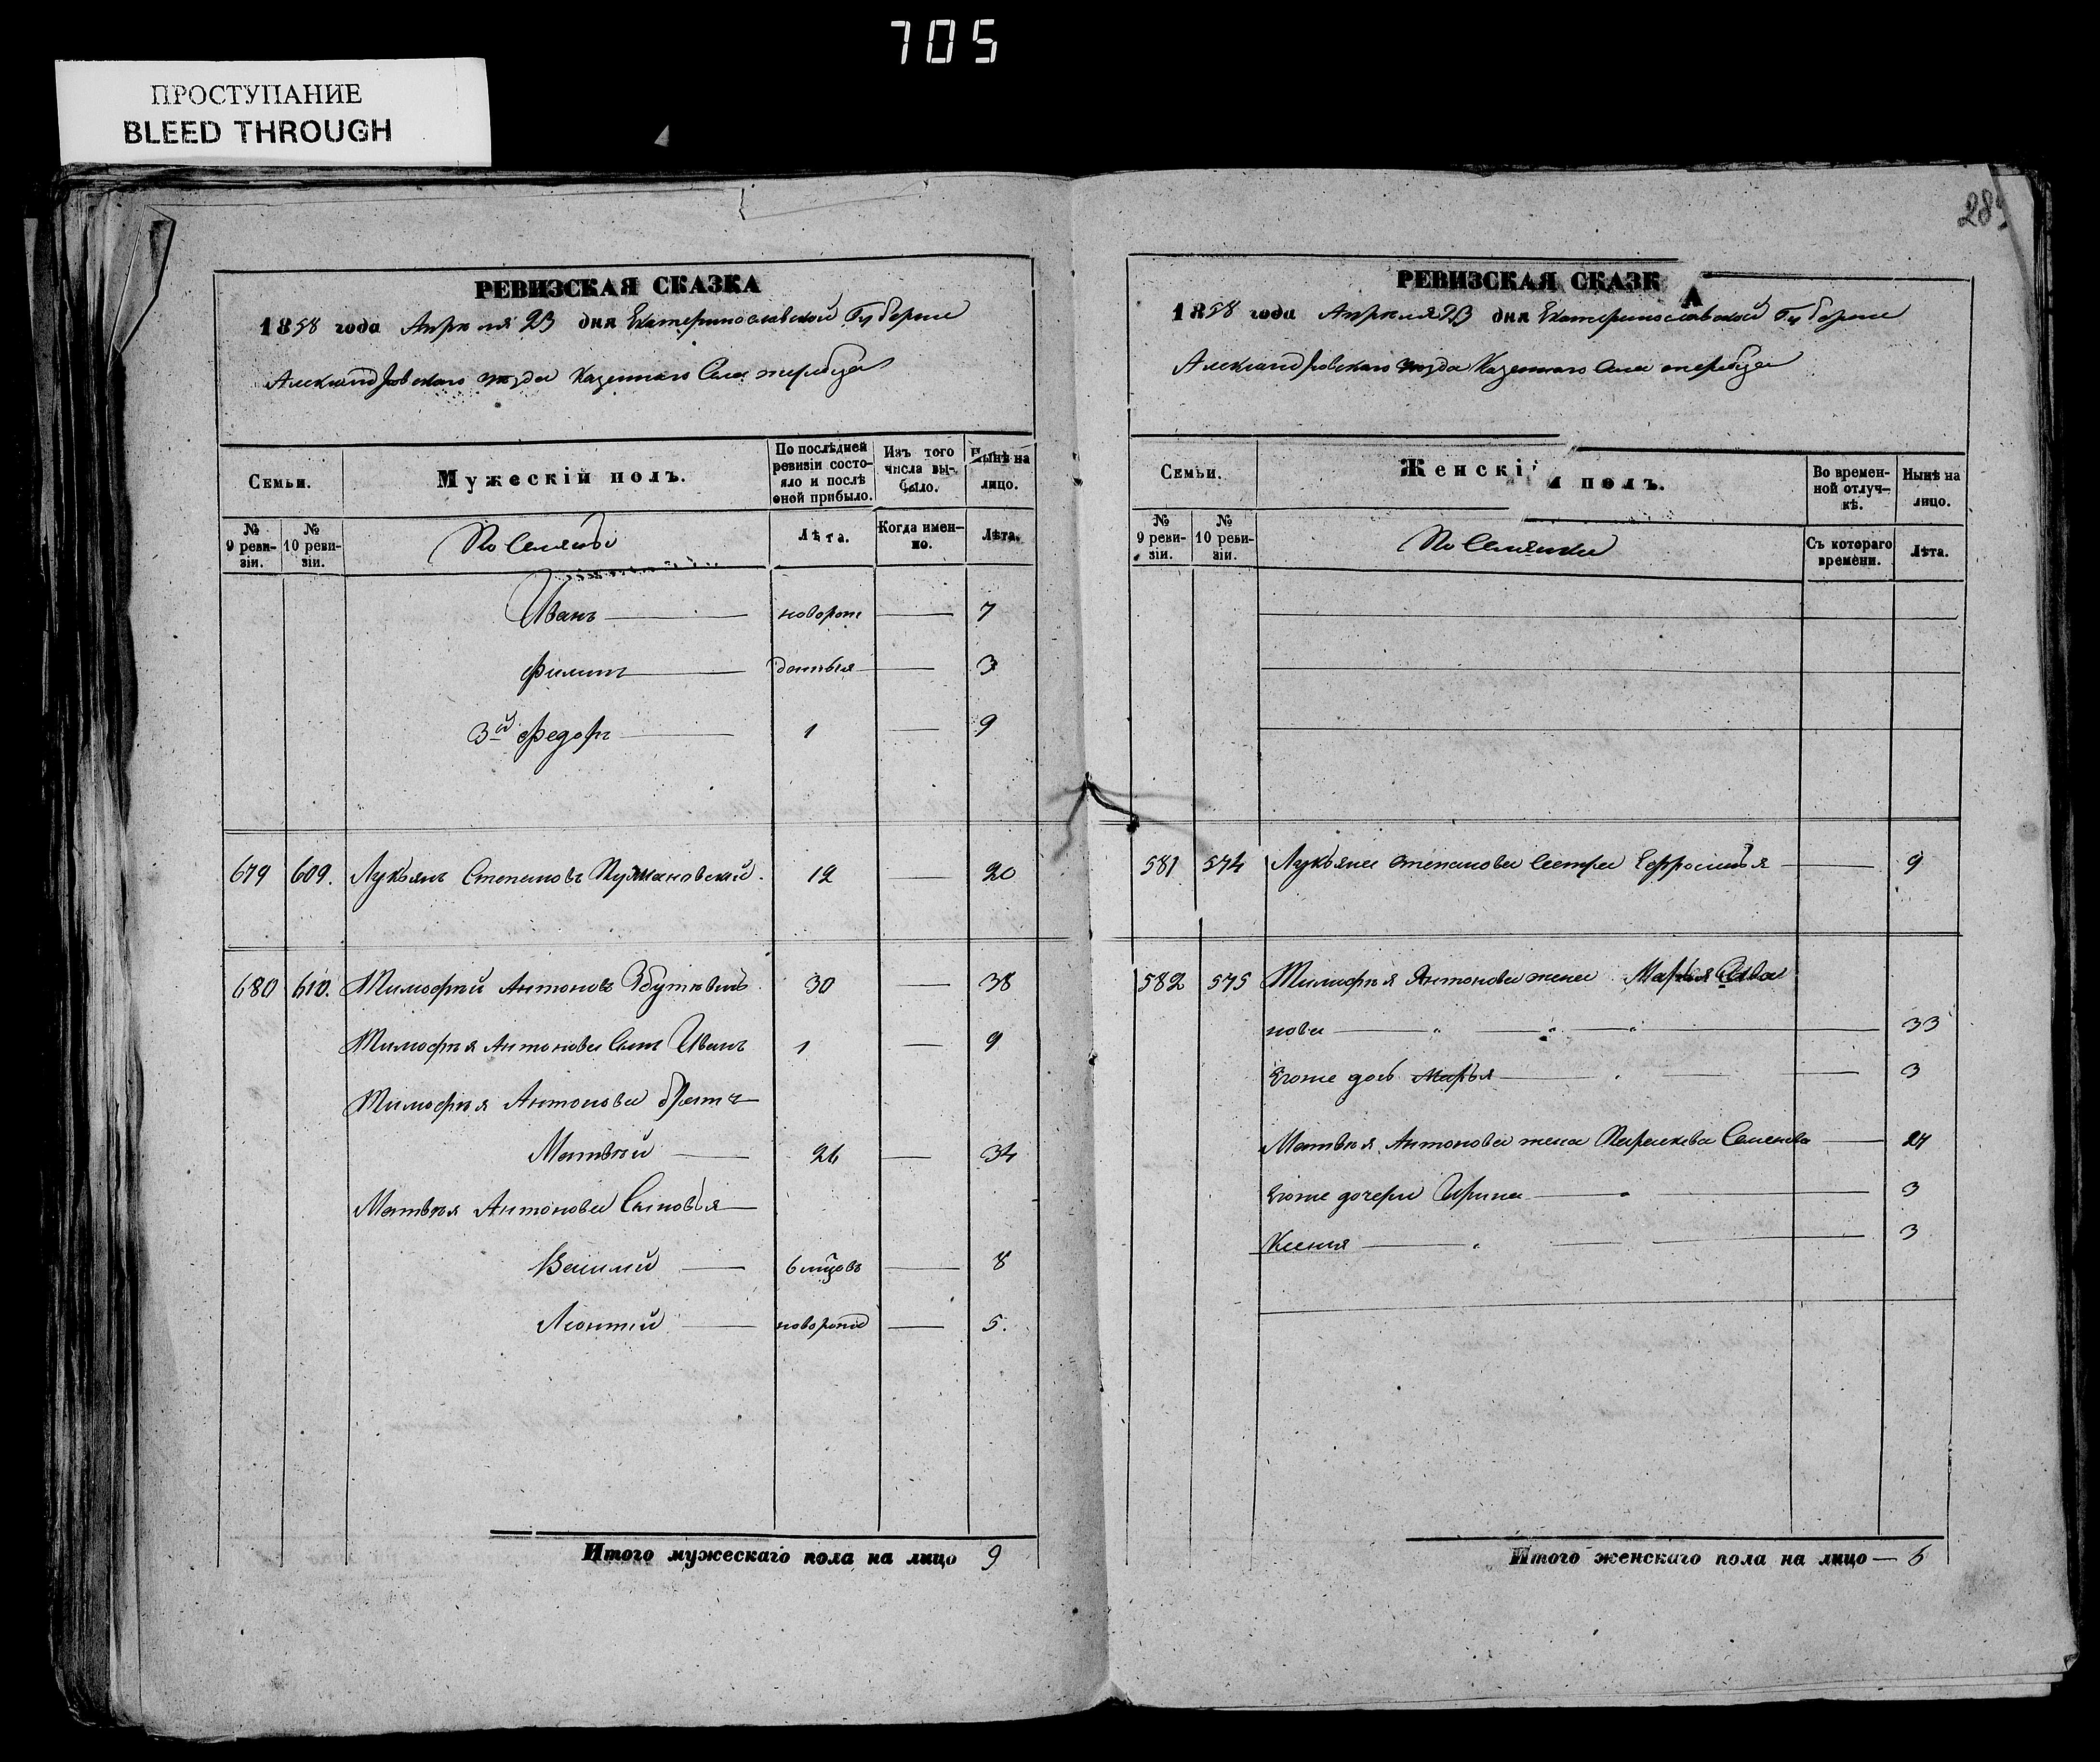 705
ПРОСТУПАНИЕ
BLEED THROUGH
РЕВИЗСКАЯ СКАЗКА
1858 года Апреля 23 дня Екатеринославской Губернии
Александровского уезда Казенного Села
Семьи.
Мужескій полъ.
По послѣдней ревизіи состояло и послѣ оной прибыло.
Изъ того числа выбыло.
Нынѣ на лицо.
№ 9 ревизіи.
№ 10 ревизіи.
Поселяне
Лѣта.
Когда именно.
Лѣта.
Иванъ новорож 7
Филипъ денныя 3
3й Федоръ 1 9
679 609. Лукьянъ Степановъ 12 20
680 610. Тимофей Антоновъ 30 38
Тимофея Антонова Сынъ Иванъ 1 9
Тимофея Антонова братъ
Матвѣй 26 34
Матвѣя Антонова Сыновья
Василий 6 мцовъ 8
Леонтий новорожд 5.
Итого мужескаго пола на лицо 9
РЕВИЗСКАЯ СКАЗКА
1858 года Апреля 23 дня Екатеринославской Губернии
Александровского уезда Казенного Села
Семьи.
Женскій полъ.
Во временной отлучкѣ.
Нынѣ на лицо.
№ 9 ревизіи.
№ 10 ревизіи.
Поселянки
Съ котораго времени.
Лѣта.
581 574 Лукьяна Степанова Сестра Ефросинья 9
582 575 Тимофея Антонова жена Марья Ива
нова 33
Егоже дочь Марья 3
Матвѣя Антонова жена Параскева Семенова 27
Егоже дочери Ирина 3
Ксения 3
Итого женскаго пола на лицо — 6